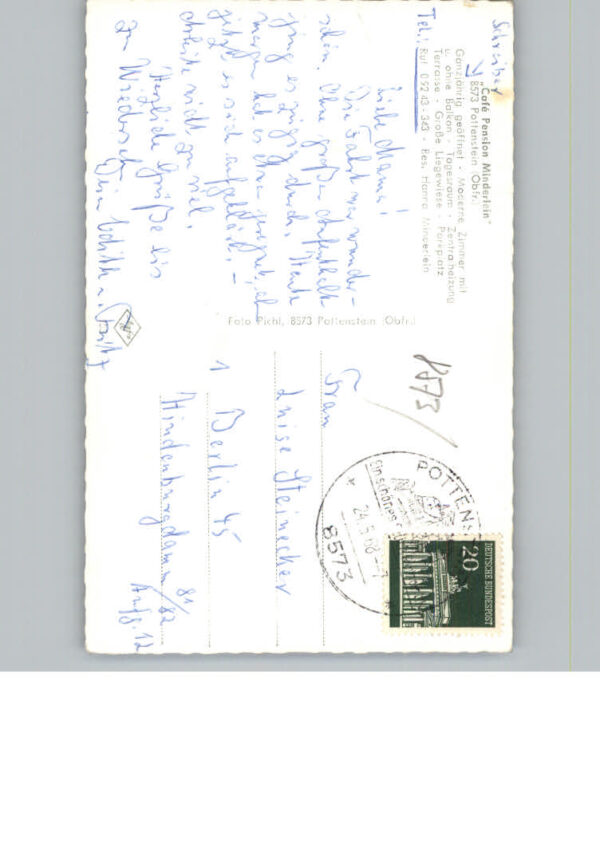 Schreiber
„Café Pension Minderlein"
8573 Pottenstein (Obfr.)
Ganzjährig geöffnet - Moderne Zimmer mit
u. ohne Balkon - Tagesraum - Zentralheizung
Terrasse - Große Liegewiese - Parkplatz
Tel.! Ruf 09243-343 - Bes. Hanna Minderlein
Liebe Mama!
Die Fahrt war wunder-
schön. Ohne großen Aufenthalt
ging es zügig durch. Heute
morgen hat es geregnet,
jetzt es sich aufgeklärt. -
Arbeite nicht zu viel.
Herzliche Grüße bis
zum Wiedersehen
Deine Edith u. Fritz
Foto Pichl, 8573 Pottenstein (Obfr.)
8573
POTTENS
Ein schönes
24.5.68-7
8573
DEUTSCHE BUNDESPOST
20
Frau
Luise Steinecker
1 Berlin 45
Hindenburgdamm 81/82
Aufg. 12